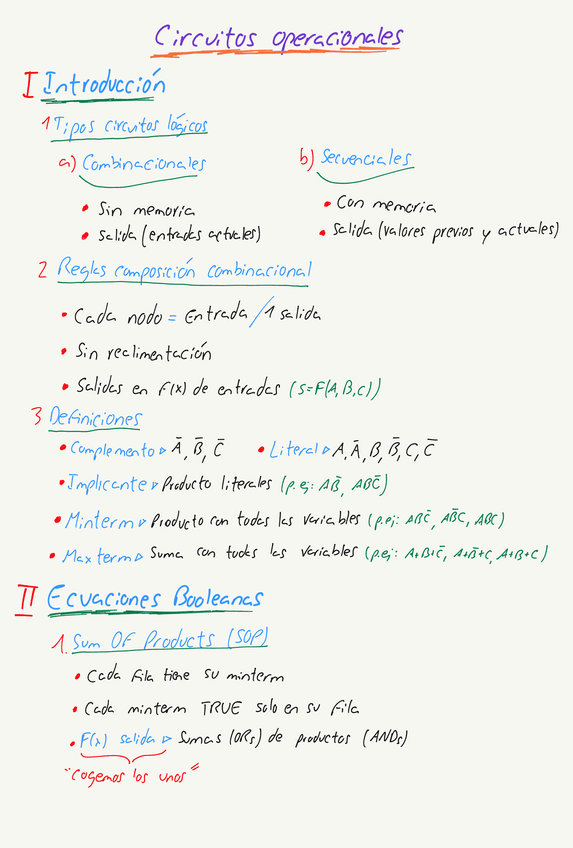 Circuitos operacionales
I Introducción
1 Tipos circuitos lógicos
a) Combinacionales
• Sin memoria
• Salida (entradas actuales)
b) Secuenciales
• Con memoria
• Salida (valores previos y actuales)
2 Reglas composición combinacional
• Cada nodo = Entrada / 1 salida
• Sin realimentación
• Salidas en F(x) de entradas (S=F(A,B,C))
3 Definiciones
• Complemento ▹ Ā, B̄, C̄ • Literal ▹ A, Ā, B, B̄, C, C̄
• Implicante ▹ Producto literales (p.ej: AB̄, ABC̄)
• Minterm ▹ Producto con todas las variables (p.ej: ABC̄, AB̄C, ABC)
• Maxterm ▹ Suma con todas las variables (p.ej: A+B+C̄, A+B̄+C, A+B+C)
II Ecuaciones Booleanas
1. Sum OF Products (SOP)
• Cada fila tiene su minterm
• Cada minterm TRUE solo en su fila
• F(x) salida ▹ Sumas (ORs) de productos (ANDs)
"Cogemos los unos"